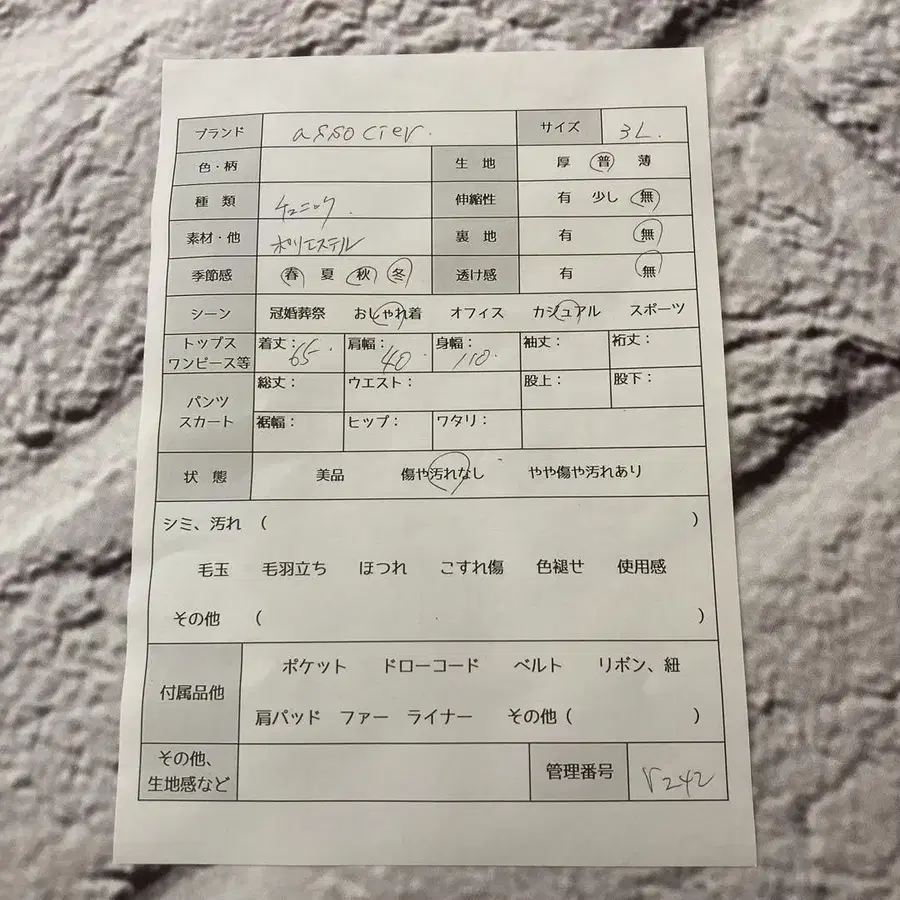 ブランド associer. サイズ 3L.
色・柄 生地 厚 普 薄
種類 チュニック. 伸縮性 有 少し 無
素材・他 ポリエステル 裏地 有 無
季節感 春 夏 秋 冬 透け感 有 無
シーン 冠婚葬祭 おしゃれ着 オフィス カジュアル スポーツ
トップス ワンピース等 着丈：65. 肩幅：40. 身幅：110. 袖丈： 裄丈：
パンツ スカート 総丈： ウエスト： 股上： 股下：
裾幅： ヒップ： ワタリ：
状態 美品 傷や汚れなし やや傷や汚れあり
シミ、汚れ （ ）
毛玉 毛羽立ち ほつれ こすれ傷 色褪せ 使用感
その他 （ ）
付属品他 ポケット ドローコード ベルト リボン、紐
肩パッド ファー ライナー その他（ ）
その他、生地感など 管理番号 r242